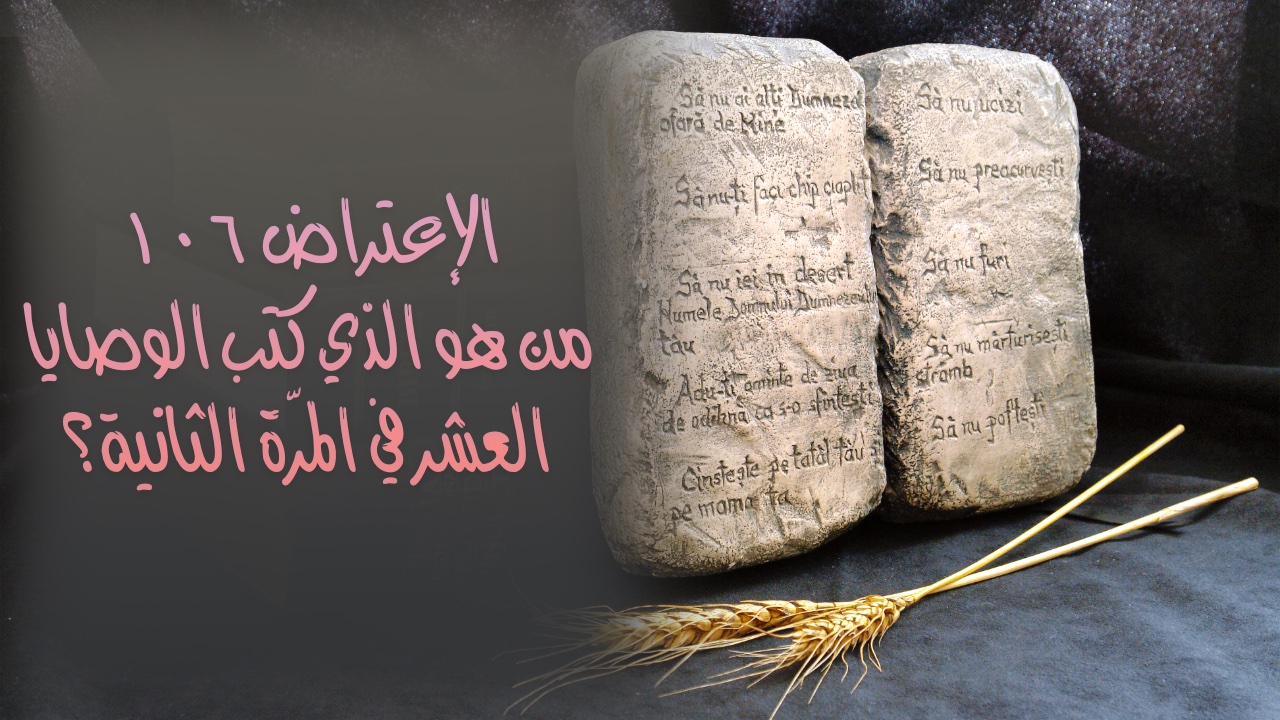 الإعتراض ١٠٦
من هو الذي كتب الوصايا
العشر في المرّة الثانية؟
Să nu ai alți Dumnezei
afară de Mine
Să nu-ți faci chip cioplit
Să nu iei în deșert
Numele Domnului Dumnezeului
tău
Adu-ți aminte de ziua
de odihnă ca s-o sfințești
Cinstește pe tatăl tău și
pe mama ta
Să nu ucizi
Să nu preacurvești
Să nu furi
Să nu mărturisești
strâmb
Să nu poftești